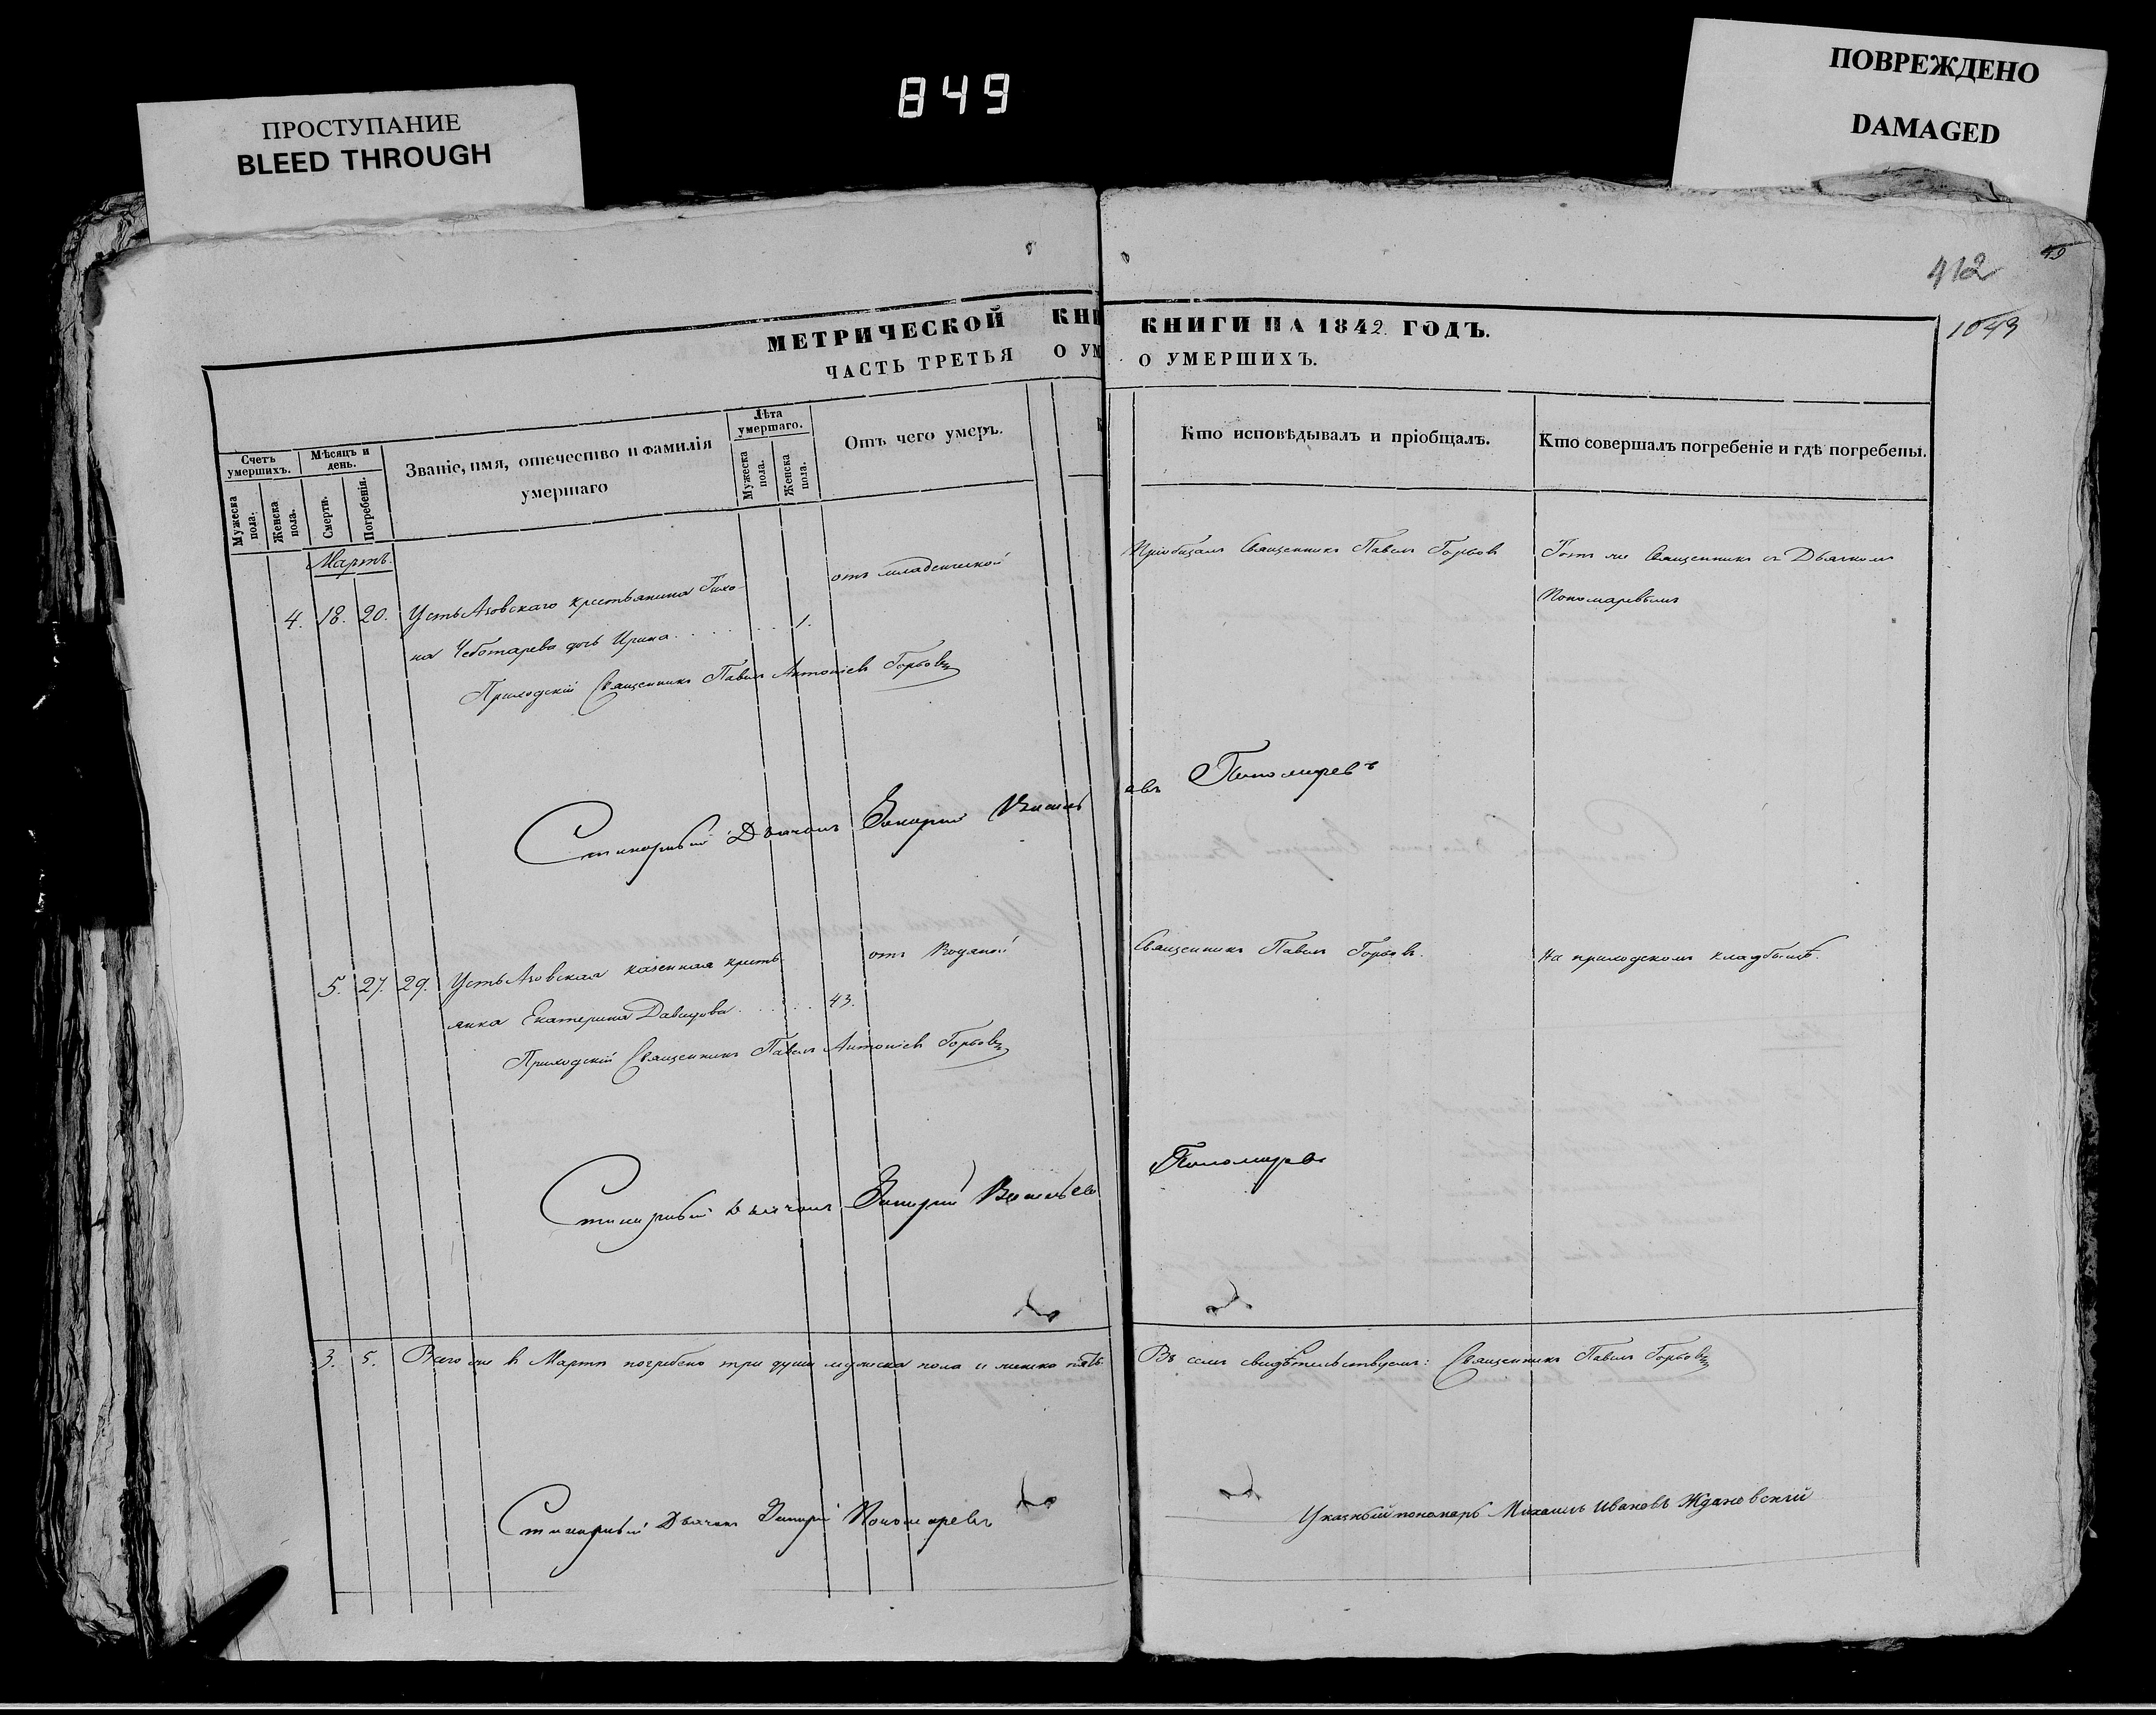 849
ПРОСТУПАНИЕ
BLEED THROUGH
ПОВРЕЖДЕНО
DAMAGED
412
1049
МЕТРИЧЕСКОЙ КНИ
ЧАСТЬ ТРЕТЬЯ О УМ
КНИГИ НА 1842 ГОДЪ.
О УМЕРШИХЪ.
Счетъ умершихъ.
Мужеска пола.
Женска пола.
Мѣсяцъ и день.
Смерти.
Погребенія.
Званіе, имя, отечество и фамилія
умершаго
Лѣта умершаго.
Мужеска пола.
Женска пола.
Отъ чего умеръ.
Кто исповѣдывалъ и пріобщалъ.
Кто совершалъ погребеніе и гдѣ погребены.
Мартъ.
4. 18. 20. Усть Азовскаго крестьянина Тихо-
на Чеботарева дочь Ирина 1.
отъ младенческой
Пріобщалъ Священникъ Павелъ Горбовъ
Тотъ же Священникъ съ Дьячкомъ
Пономаревымъ
Приходскій Священникъ Павелъ Антоніевъ Горбовъ
Дьячокъ Василь евъ Пономаревъ
5. 27. 29. Усть Азовская казенная кресть-
янка Екатерина Давыдова 43.
отъ Водяной
Священникъ Павелъ Горбовъ.
На приходскомъ кладбищѣ.
Приходскій Священникъ Павелъ Антоніевъ Горбовъ
Дьячокъ Васильевъ Пономаревъ
3. 5. Всего же в Мартѣ погребено три души мужеска пола и женско пять.
Въ семъ свидѣтельствуемъ: Священникъ Павелъ Горбовъ
Дьячокъ Пономаревъ
Указный пономарь Михаилъ Ивановъ Ждановскій